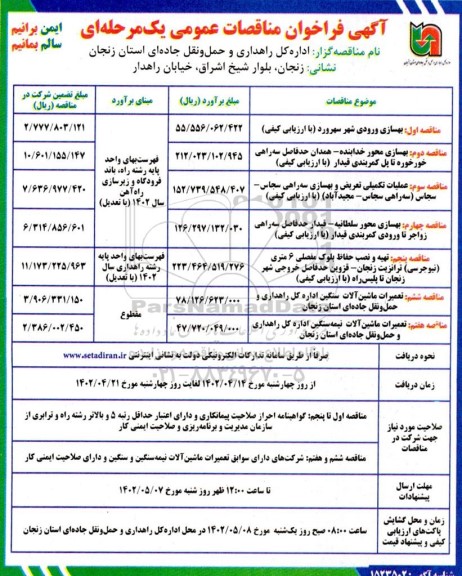 آگهی فراخوان مناقصات عمومی یک‌مرحله‌ای
ایمن برانیم
سالم بمانیم
نام مناقصه‌گزار: اداره‌کل راهداری و حمل‌ونقل جاده‌ای استان زنجان
نشانی: زنجان، بلوار شیخ اشراق، خیابان راهدار
موضوع مناقصات
مبلغ برآورد (ریال)
مبنای برآورد
مبلغ تضمین شرکت در مناقصه (ریال)
مناقصه اول: بهسازی ورودی شهر سهرورد (با ارزیابی کیفی)
۵۵/۵۵۶/۰۶۲/۴۲۲
۲/۷۷۷/۸۰۳/۱۲۱
مناقصه دوم: بهسازی محور خدابنده- همدان حدفاصل سه‌راهی خورخوره تا پل کمربندی قیدار (با ارزیابی کیفی)
۲۱۲/۰۲۳/۱۰۲/۹۴۵
۱۰/۶۰۱/۱۵۵/۱۴۷
مناقصه سوم: عملیات تکمیلی تعریض و بهسازی سه‌راهی سجاس- سجاس (سه‌راهی سجاس- مجیدآباد) (با ارزیابی کیفی)
۱۵۲/۷۳۹/۵۴۸/۴۰۷
۷/۶۳۶/۹۷۷/۴۲۰
مناقصه چهارم: بهسازی محور سلطانیه- قیدار حدفاصل سه‌راهی زواجر تا ورودی کمربندی قیدار (با ارزیابی کیفی)
۱۲۶/۲۹۷/۱۳۲/۰۳۰
۶/۳۱۴/۸۵۶/۶۰۱
فهرست‌بهای واحد پایه رشته راه، باند فرودگاه و زیرسازی راه‌آهن سال ۱۴۰۲ (با تعدیل)
مناقصه پنجم: تهیه و نصب حفاظ بلوک مفصلی ۶ متری (نیوجرسی) ترانزیت زنجان- قزوین حدفاصل خروجی شهر زنجان تا پلیس‌راه (با ارزیابی کیفی)
۲۲۳/۴۶۴/۵۱۹/۲۷۶
فهرست‌بهای واحد پایه رشته راهداری سال ۱۴۰۲ (با تعدیل)
۱۱/۱۷۳/۲۲۵/۹۶۳
مناقصه ششم: تعمیرات ماشین‌آلات سنگین اداره کل راهداری و حمل‌ونقل جاده‌ای استان زنجان
۷۸/۱۲۶/۶۲۳/۰۰۰
مقطوع
۳/۹۰۶/۳۳۱/۱۵۰
مناقصه هفتم: تعمیرات ماشین‌آلات نیمه‌سنگین اداره کل راهداری و حمل‌ونقل جاده‌ای استان زنجان
۴۷/۷۲۰/۰۴۹/۰۰۰
۲/۳۸۶/۰۰۲/۴۵۰
نحوه دریافت
صرفا از طریق سامانه تدارکات الکترونیکی دولت به نشانی اینترنتی www.setadiran.ir
زمان دریافت
از روز چهارشنبه مورخ ۱۴۰۲/۰۴/۱۴ لغایت روز چهارشنبه مورخ ۱۴۰۲/۰۴/۲۱
صلاحیت مورد نیاز جهت شرکت در مناقصات
مناقصه اول تا پنجم: گواهینامه احراز صلاحیت پیمانکاری و دارای اعتبار حداقل رتبه ۵ و بالاتر رشته راه و ترابری از سازمان مدیریت و برنامه‌ریزی و صلاحیت ایمنی کار
مناقصه ششم و هفتم: شرکت‌های دارای سوابق تعمیرات ماشین‌آلات نیمه‌سنگین و سنگین و دارای صلاحیت ایمنی کار
مهلت ارسال پیشنهادات
تا ساعت ۱۲:۰۰ ظهر روز شنبه مورخ ۱۴۰۲/۰۵/۰۷
زمان و محل گشایش پاکت‌های ارزیابی کیفی و پیشنهاد قیمت
ساعت ۰۸:۰۰ صبح روز یک‌شنبه مورخ ۱۴۰۲/۰۵/۰۸ در محل اداره‌کل راهداری و حمل‌ونقل جاده‌ای استان زنجان
ParsNamadData
۰۲۱-۸۸۳۴۹۶۷۰-۵
شناسه آگهی ۱۵۲۳۵۰۲۰